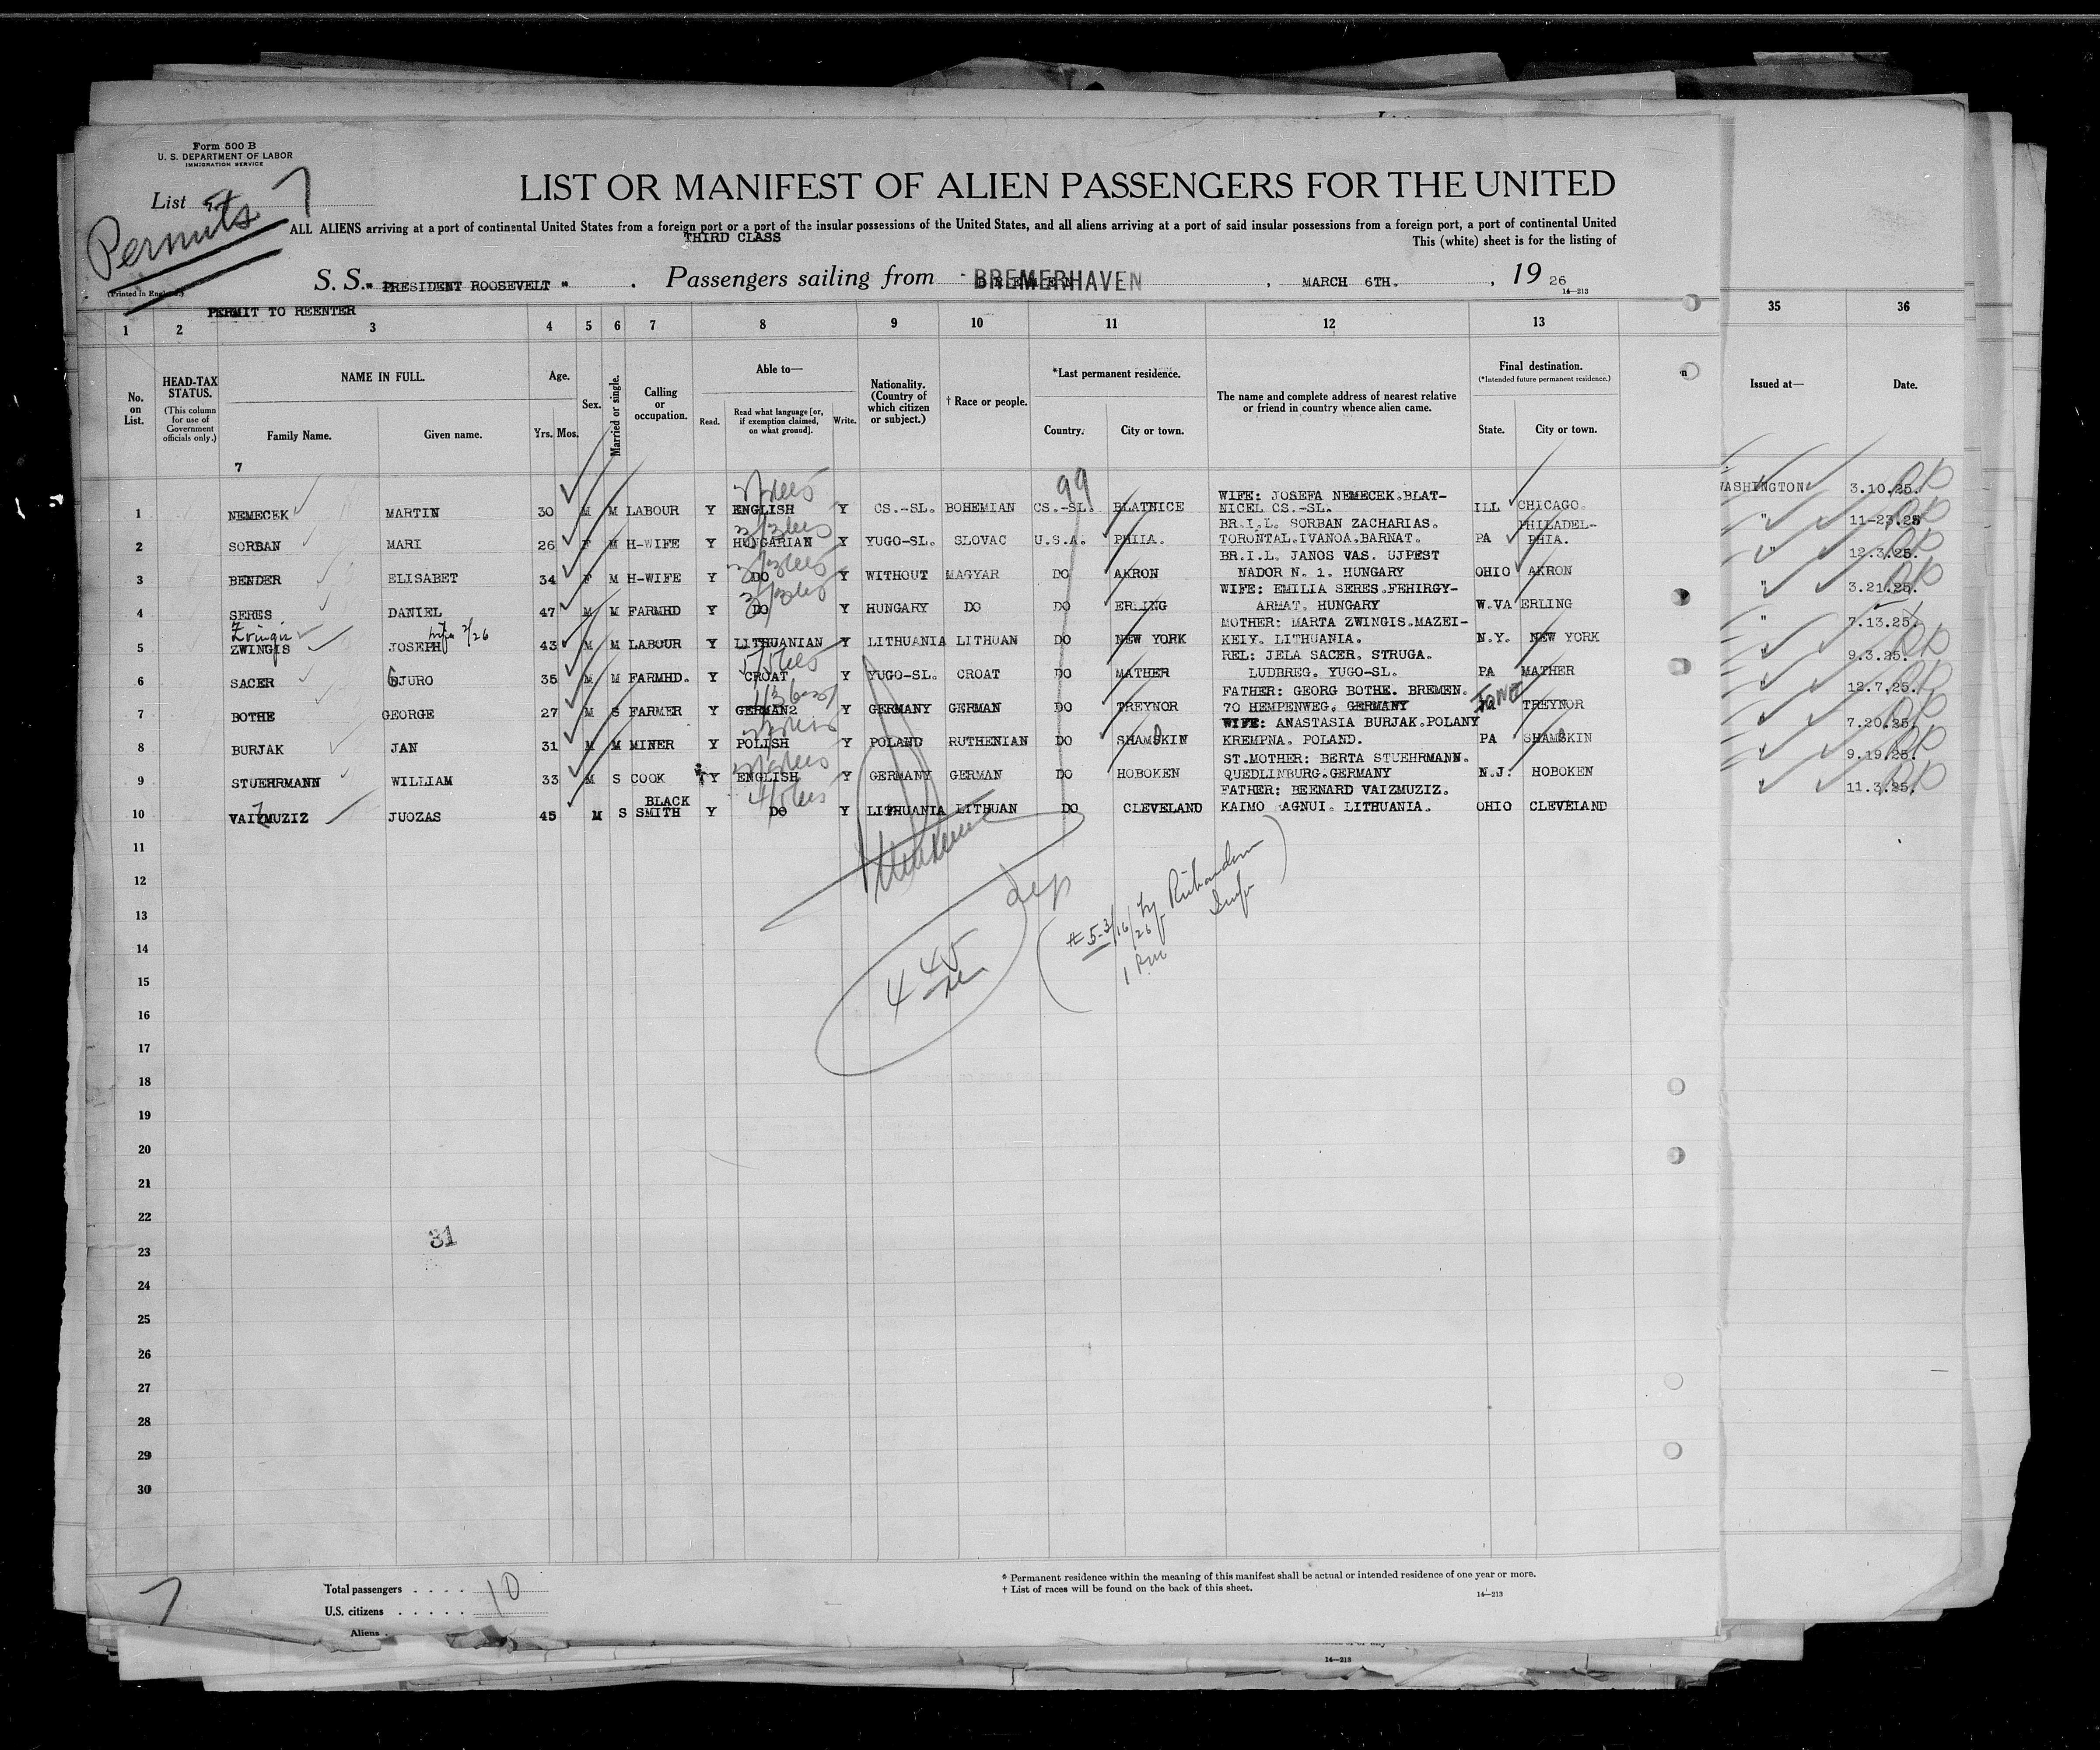 Form 500 B
U. S. DEPARTMENT OF LABOR
IMMIGRATION SERVICE
List 7
Permits
LIST OR MANIFEST OF ALIEN PASSENGERS FOR THE UNITED
ALL ALIENS arriving at a port of continental United States from a foreign port or a port of the insular possessions of the United States, and all aliens arriving at a port of said insular possessions from a foreign port, a port of continental United
THIRD CLASS
This (white) sheet is for the listing of
S. S. " PRESIDENT ROOSEVELT " . Passengers sailing from BREMERHAVEN , MARCH 6TH. , 1926
(Printed in England.)
14—213
PERMIT TO REENTER
1 2 3 4 5 6 7 8 9 10 11 12 13 35 36
No. on List.
HEAD-TAX STATUS.
(This column for use of Government officials only.)
NAME IN FULL.
Family Name. Given name.
Age.
Yrs. Mos.
Sex.
Married or single.
Calling or occupation.
Able to—
Read. Read what language [or, if exemption claimed, on what ground]. Write.
Nationality. (Country of which citizen or subject.)
† Race or people.
*Last permanent residence.
Country. City or town.
The name and complete address of nearest relative or friend in country whence alien came.
Final destination.
(*Intended future permanent residence.)
State. City or town.
Issued at— Date.
7
99
1 NEMECEK MARTIN 30 M M LABOUR Y ENGLISH Y CS.-SL. BOHEMIAN CS.-SL. BLATNICE WIFE: JOSEFA NEMECEK.BLAT-NICEL CS.-SL. ILL CHICAGO. WASHINGTON 3.10.25.
2 SORBAN MARI 26 F M H-WIFE Y HUNGARIAN Y YUGO-SL. SLOVAC U.S.A. PHIIA. BR.I.L. SORBAN ZACHARIAS. TORONTAL.IVANOA.BARNAT. PA PHILADEL-PHIA. " 11-23.25
3 BENDER ELISABET 34 F M H-WIFE Y DO Y WITHOUT MAGYAR DO AKRON BR.I.L. JANOS VAS. UJPEST NADOR N. 1. HUNGARY OHIO AKRON " 12.3.25.
4 SERES DANIEL 47 M M FARMHD Y DO Y HUNGARY DO DO ERLING WIFE: EMILIA SERES.FEHIRGY-ARMAT. HUNGARY W.VA ERLING " 3.21.25.
5 ZWINGIS JOSEPH 43 M M LABOUR Y LITHUANIAN Y LITHUANIA LITHUAN DO NEW YORK MOTHER: MARTA ZWINGIS.MAZEI-KEIY. LITHUANIA. N.Y. NEW YORK " 7.13.25.
6 SACER GJURO 35 M M FARMHD. Y CROAT Y YUGO-SL. CROAT DO MATHER REL: JELA SACER. STRUGA. LUDBREG. YUGO-SL. PA MATHER 9.3.25.
7 BOTHE GEORGE 27 M S FARMER Y GERMAN2 Y GERMANY GERMAN DO TREYNOR FATHER: GEORG BOTHE. BREMEN. 70 HEMPENWEG. GERMANY TREYNOR 12.7.25.
8 BURJAK JAN 31 M M MINER Y POLISH Y POLAND RUTHENIAN DO SHAMOKIN WIFE: ANASTASIA BURJAK.POLANY KREMPNA. POLAND. PA SHAMOKIN 7.20.25.
9 STUEHRMANN WILLIAM 33 M S COOK Y ENGLISH Y GERMANY GERMAN DO HOBOKEN ST.MOTHER: BERTA STUEHRMANN. QUEDLINBURG.GERMANY N.J. HOBOKEN 9.19.25.
10 VAIZMUZIZ JUOZAS 45 M S BLACK SMITH Y DO Y LITHUANIA LITHUAN DO CLEVELAND FATHER: BERNARD VAIZMUZIZ. KAIMO AGNUI. LITHUANIA. OHIO CLEVELAND 11.3.25.
11
12
13
14
15
16
17
18
19
20
21
22
23
24
25
26
27
28
29
30
31
Total passengers . . . . 10
U.S. citizens . . . . .
Aliens .
7
* Permanent residence within the meaning of this manifest shall be actual or intended residence of one year or more.
† List of races will be found on the back of this sheet.
14—213
14—213